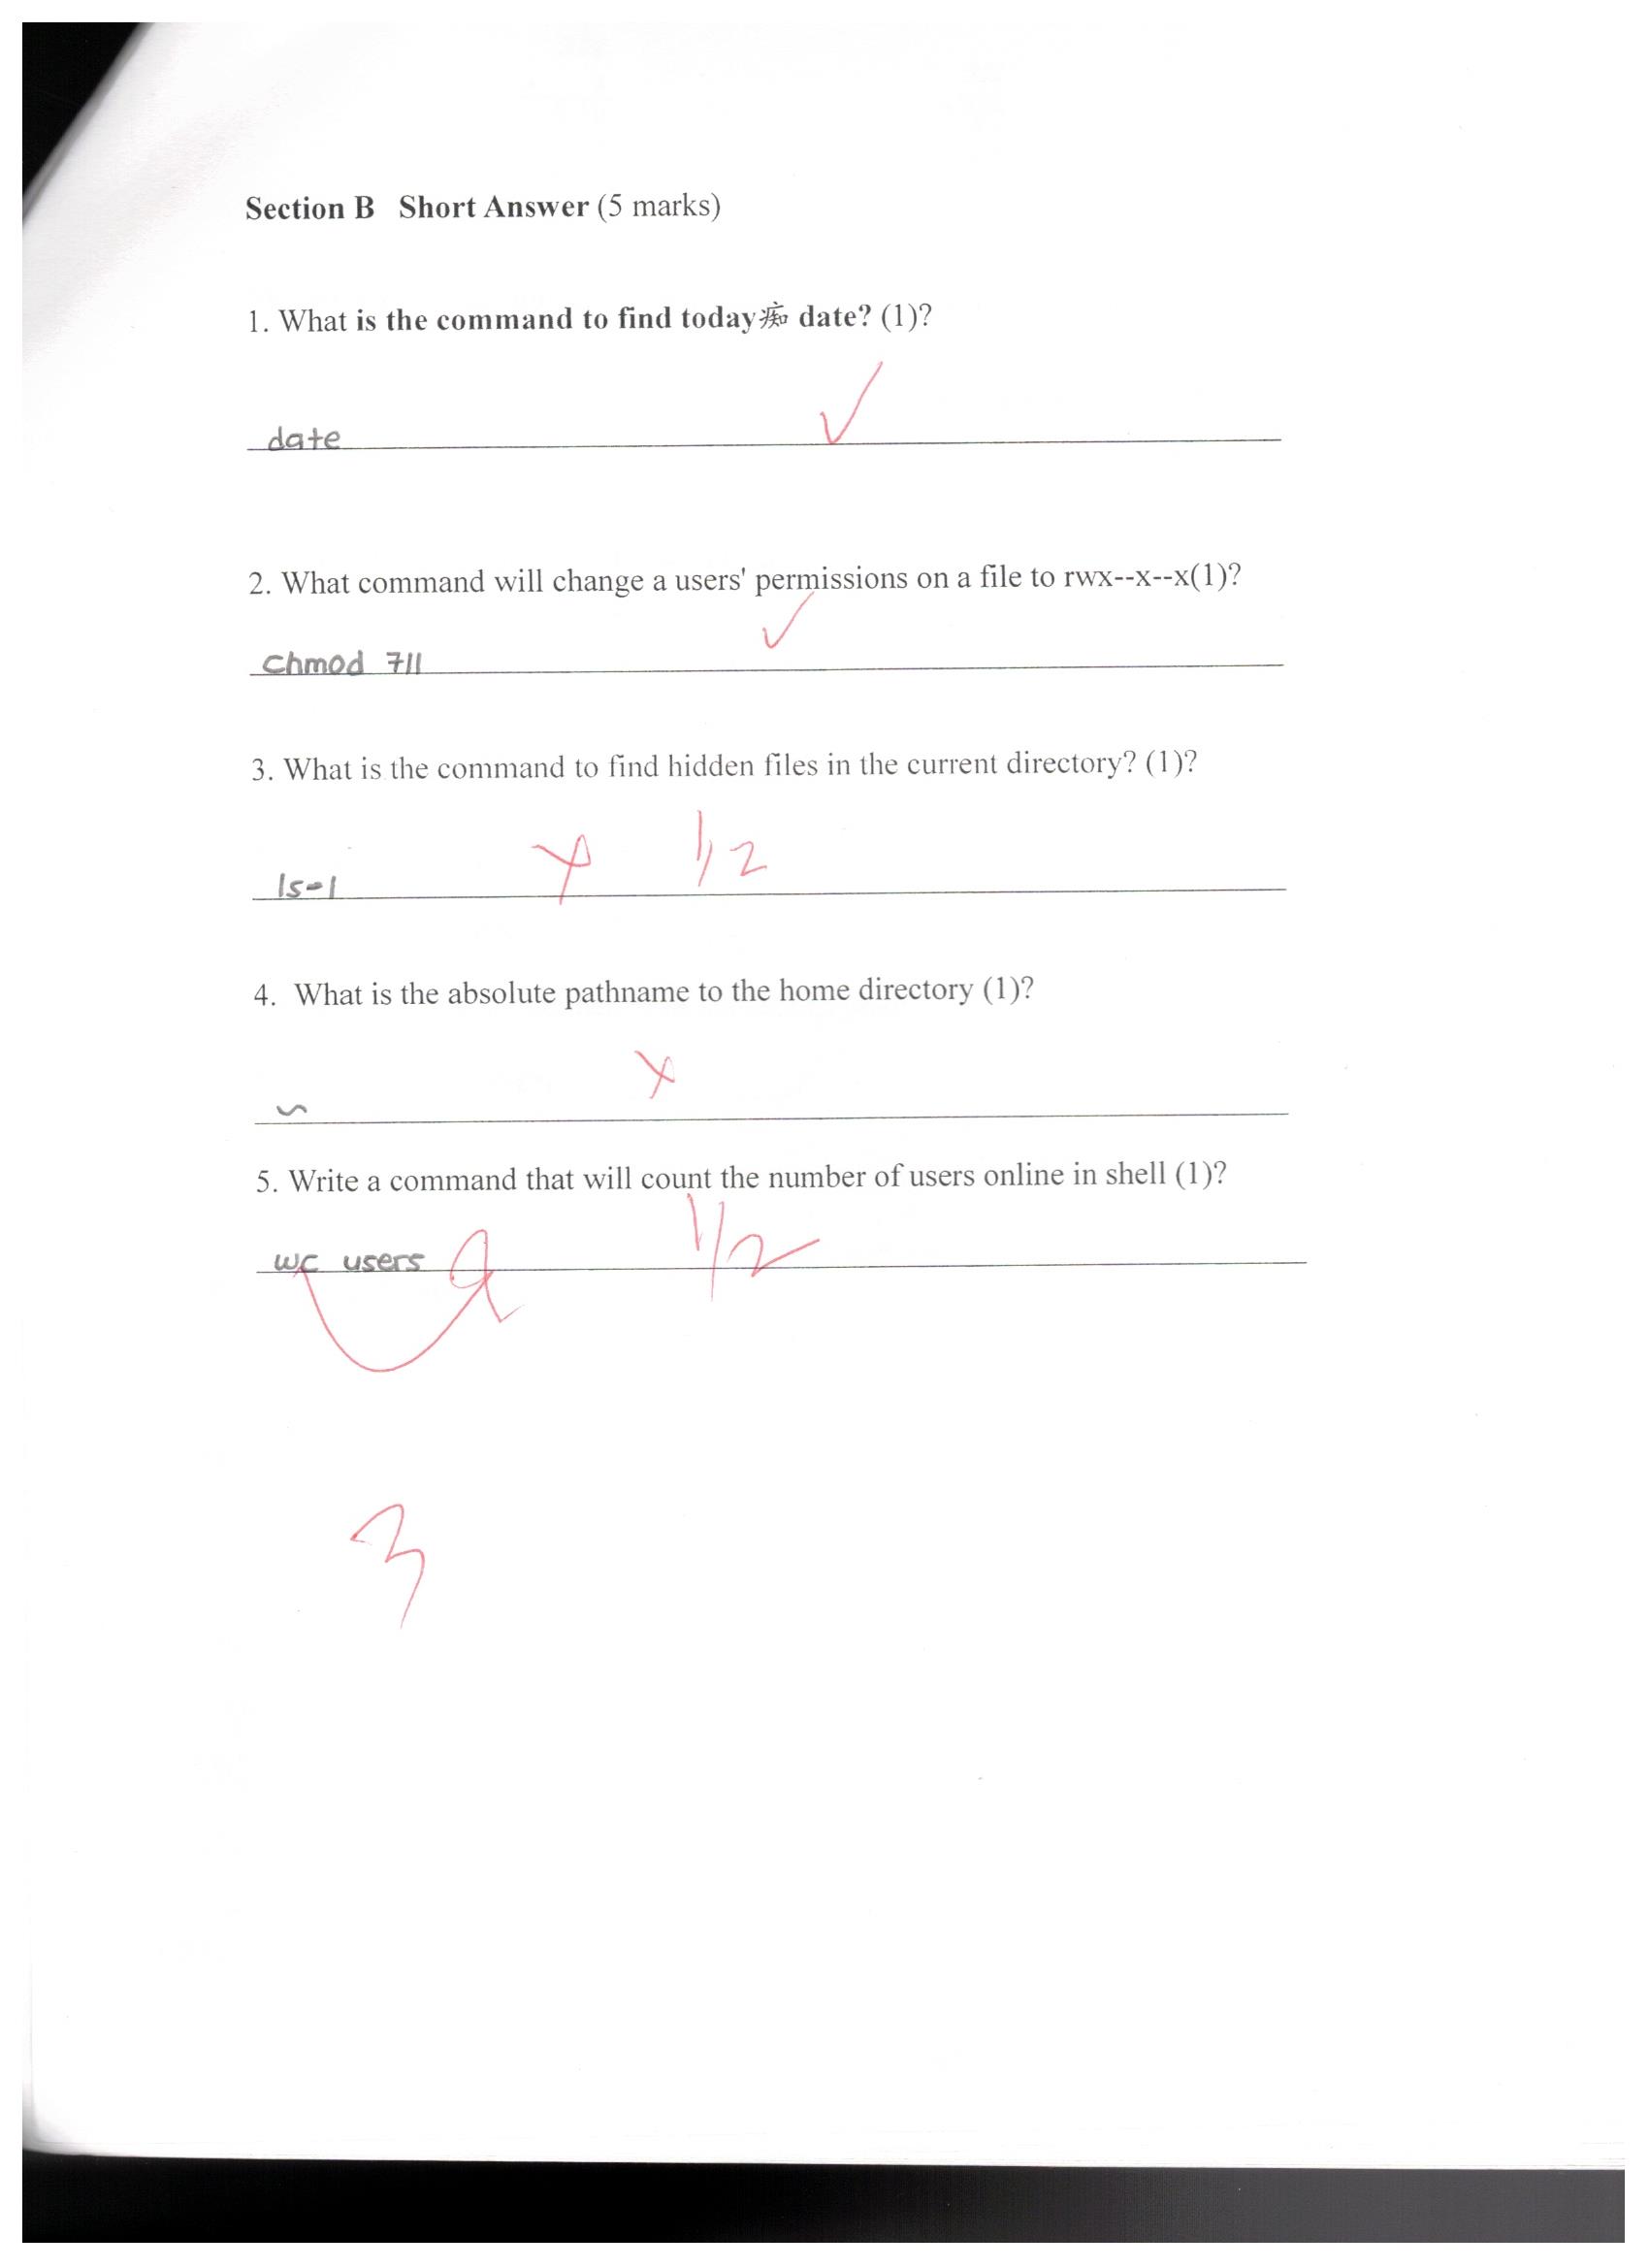 Section B Short Answer (5 marks)
1. What is the command to find today痴 date? (1)?
date
2. What command will change a users' permissions on a file to rwx--x--x(1)?
chmod 711
3. What is the command to find hidden files in the current directory? (1)?
1/2
ls-l
4. What is the absolute pathname to the home directory (1)?
~
5. Write a command that will count the number of users online in shell (1)?
wc users 1/2
3